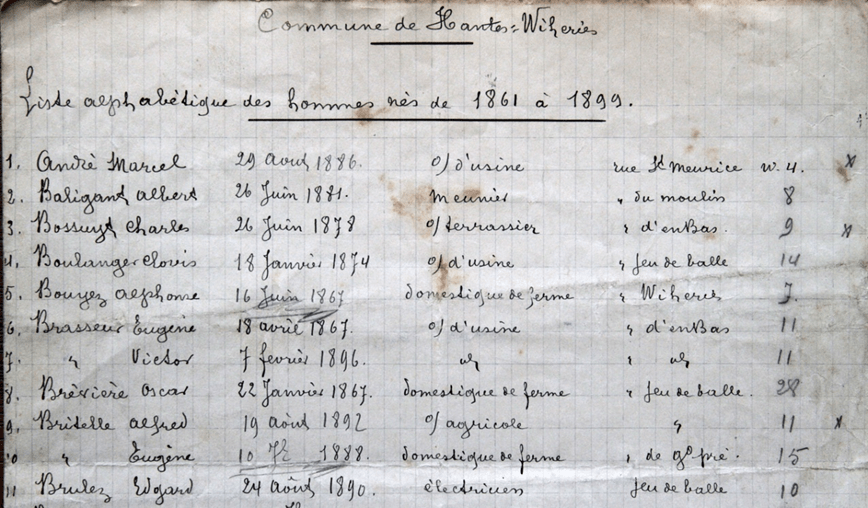 Commune de Hantes=Wiheries
Liste alphabétique des hommes nés de 1861 à 1899.
1. André Marcel 29 Aout 1886. o/ d'usine rue St Meurice w. 4. x
2. Baligant albert 26 Juin 1881. meunier " du moulin 8
3. Bossuyt Charles 26 Juin 1878 o/ terrassier " d'en Bas. 9 x
4. Boulanger Clovis 18 Janvier 1874 o/ d'usine " Jeu de balle 14
5. Bouyez alphonse 16 Juin 1867 domestique de ferme " Wiheries 7.
6. Brasseur Eugène 18 avril 1867. o/ d'usine " d'en Bas 11
7. " Victor 7 fevrier 1896. " 11
8. Brèvière Oscar 22 Janvier 1867. domestique de ferme " Jeu de balle. 28
9. Britelle alfred 19 août 1892 o/ agricole " 11 x
10 " Eugène 10 1888. domestique de ferme " de gd pré. 15
11 Brulez Edgard 24 Août 1890. électricien Jeu de balle 10